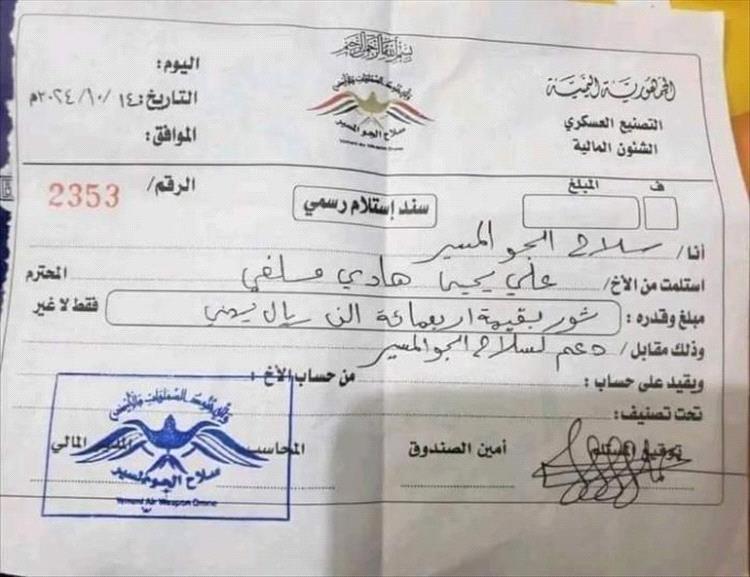 بسم الله الرحمن الرحيم
الجمهورية اليمنية
التصنيع العسكري
الشئون المالية
سلاح الجو المسير
Yemeni Air Weapon Drone
اليوم:
التاريخ: ١٤ / ١٠ / ٢٠٢٤م
الموافق:
ف المبلغ
سند إستلام رسمي
الرقم/ 2353
أنا/ سلاح الجو المسير
استلمت من الأخ/ علي يحيى هادي مسلفي المحترم
مبلغ وقدره: ثور بقيمة اربعمائة الف ريال يمني فقط لا غير
وذلك مقابل/ دعم لسلاح الجو المسير
ويقيد على حساب: من حساب الأخ:
تحت تصنيف:
توقيع المستلم أمين الصندوق المحاسب المدير المالي
سلاح الجو المسير
Yemeni Air Weapon Drone